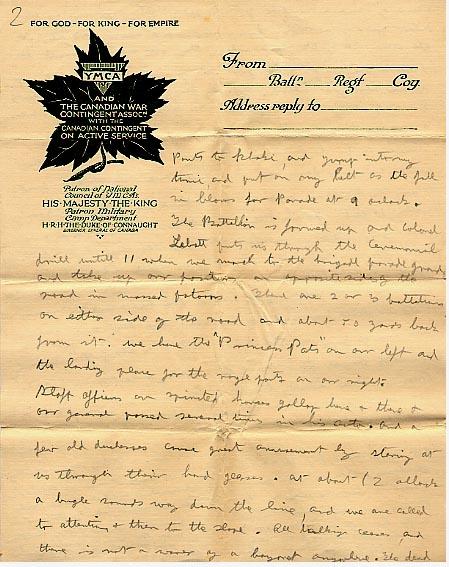 2
FOR GOD - FOR KING - FOR EMPIRE
YMCA
AND
THE CANADIAN WAR
CONTINGENT ASSOC'N
WITH THE
CANADIAN CONTINGENT
ON ACTIVE SERVICE
Patron of National
Council of Y.M.C.A's.
HIS·MAJESTY·THE·KING
Patron Military
Camp Department
H·R·H·THE·DUKE·OF·CONNAUGHT
GOVERNOR GENERAL OF CANADA
From
Batln Regt Coy
Address reply to
and jump into my
tunic, and put on my belt as the fall
in blows for Parade at 9 oclock.
The Battalion is formed up and Colonel
puts us through the Ceremonial
drill until 11 when we march to the brigade parade ground
and take up our position on opposite side of the
road in massed . There are 2 or 3 battalions
on either side of the road and about 50 yards back
from it. We have the "Princess Pats" on our left and
the landing place for the on our right.
Staff officers on spirited horses gallop here & there &
our general passed several times in his auto. And a
few old duchesses cause great amusement by staring at
us through their glasses. At about 12 oclock
a bugle sounds way down the line, and we are called
to attention & then to the slope. All talking ceases and
there is not a waver of a bayonet anywhere. The dead